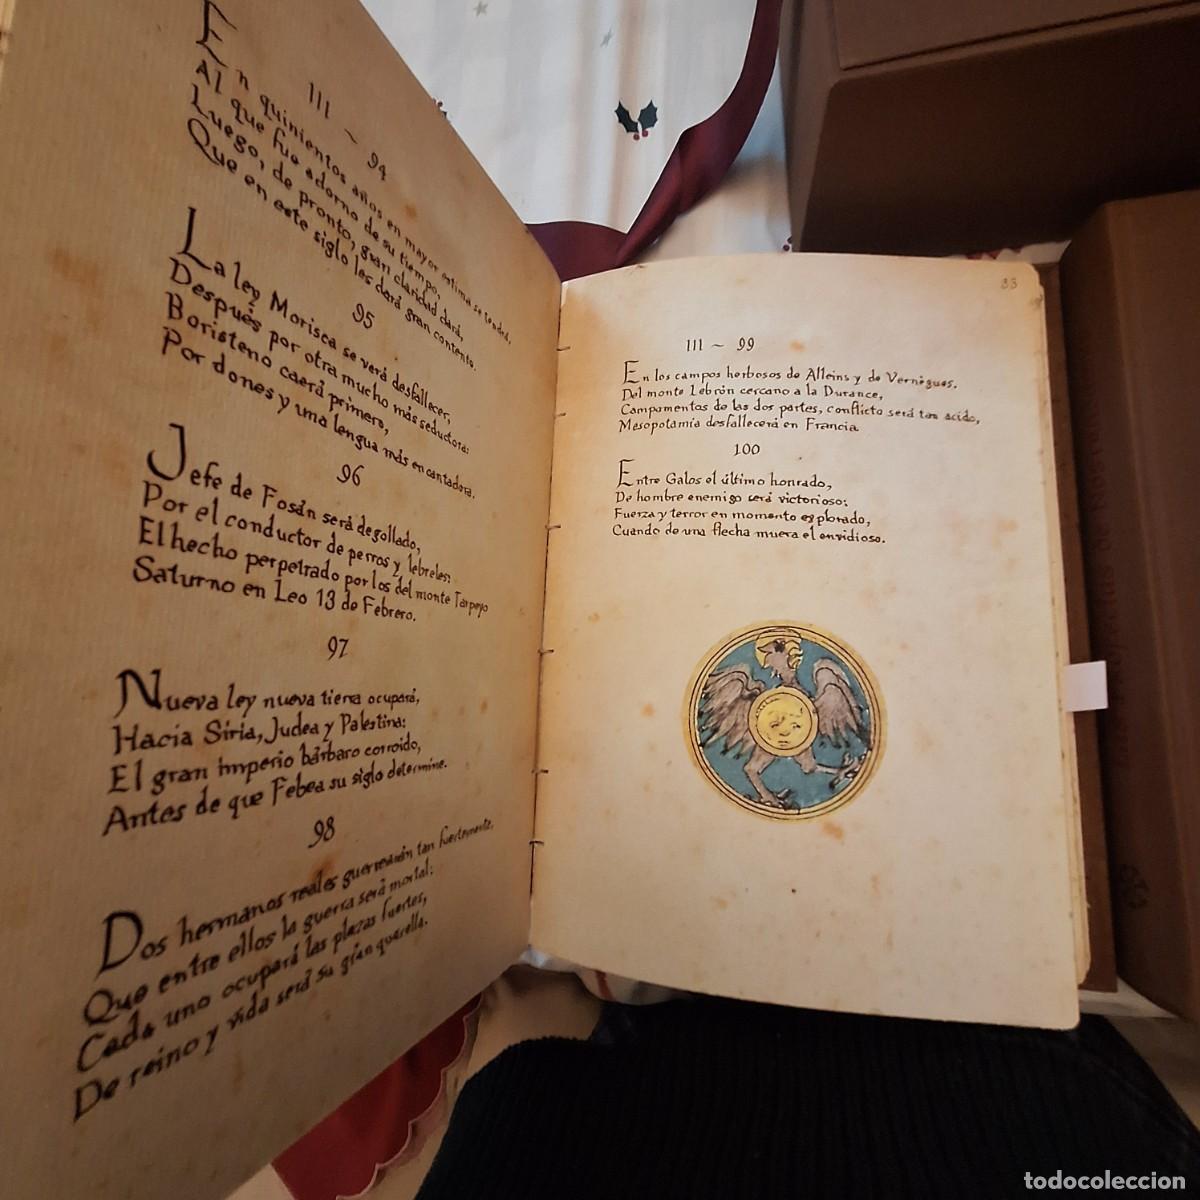 III ~ 94
En quinientos años en mayor estima se tendrá,
Al que fue adorno de su tiempo,
Luego, de pronto, gran claridad dará,
Que en este siglo les dará gran contento.
95
La ley Morisca se verá desfallecer,
Después por otra mucho más seductora:
Boristeno caerá primero,
Por dones y una lengua más encantadora.
96
Jefe de Fosán será degollado,
Por el conductor de perros y lebreles:
El hecho perpetrado por los del monte Tarpeyo
Saturno en Leo 13 de Febrero.
97
Nueva ley nueva tierra ocupará,
Hacia Siria, Judea y Palestina:
El gran imperio bárbaro corroido,
Antes de que Febea su siglo determine.
98
Dos hermanos reales guerrearán tan fuertemente,
Que entre ellos la guerra será mortal:
Cada uno ocupará las plazas fuertes,
De reino y vida será su gran querella.
33
III ~ 99
En los campos herbosos de Alleins y de Vernègues,
Del monte Lebrón cercano a la Durance,
Campamentos de las dos partes, conflicto será tan acido,
Mesopotamía desfallecerá en Francia.
100
Entre Galos el último honrado,
De hombre enemigo será victorioso:
Fuerza y terror en momento explorado,
Cuando de una flecha muera el envidioso.
todocoleccion